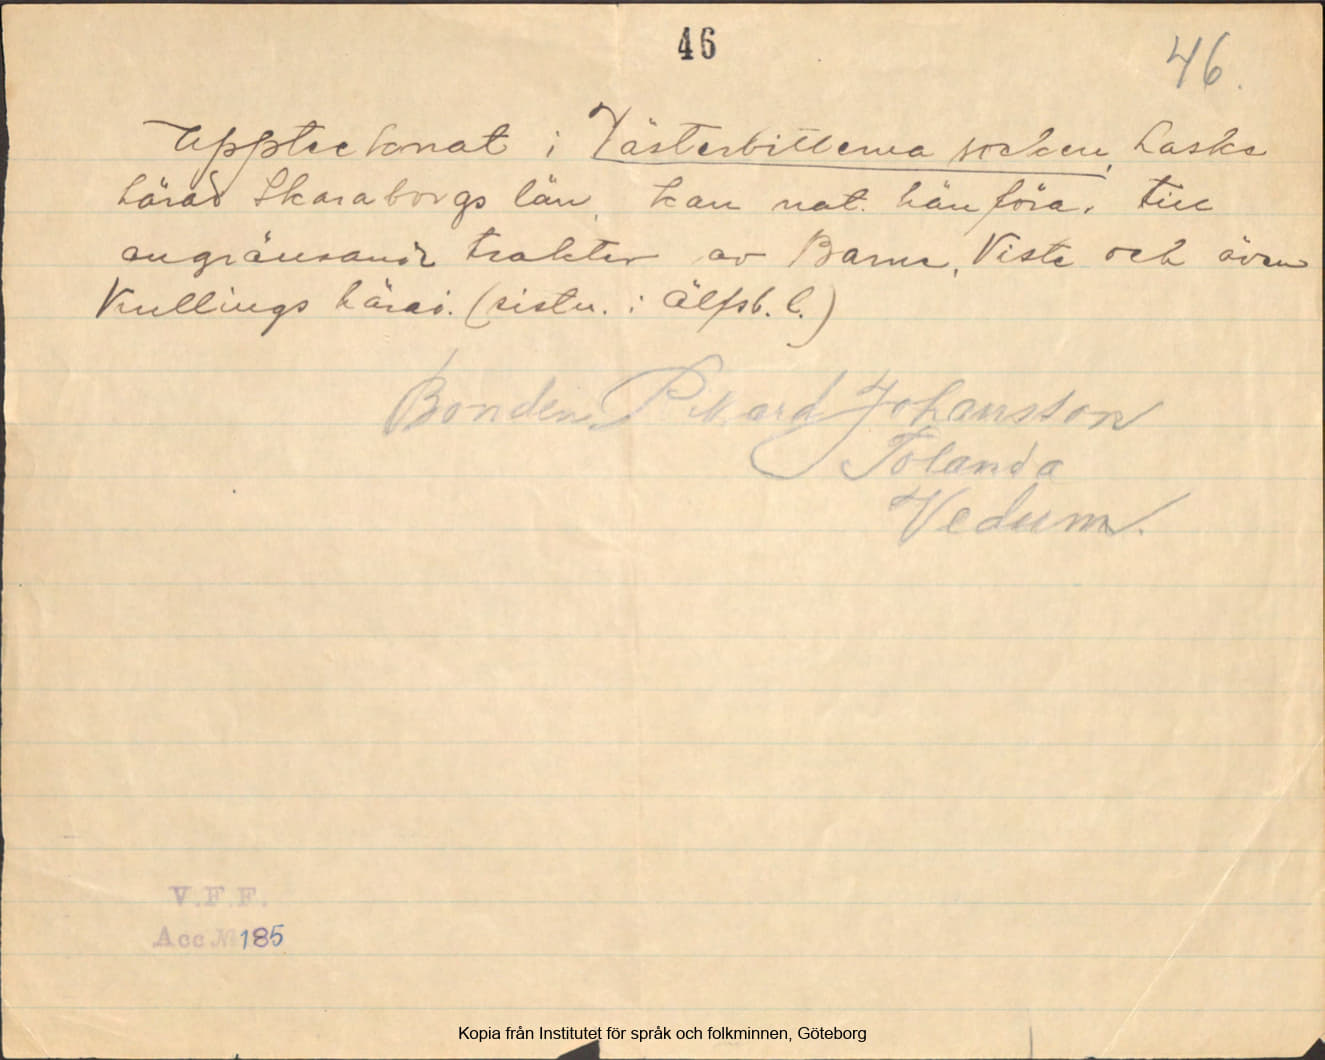 46
46.
Upptecknat i Västerbitterna socken, Laske
härad Skaraborgs län, kan nat. hänföra. till
angränsande trakter av Barne, Viste och även
Kullings härad. (sistn. i Älfsb. l.)
Bonden Johansson
Tolanda
Vedum.
V.F.F.
Acc № 185
Kopia från Institutet för språk och folkminnen, Göteborg